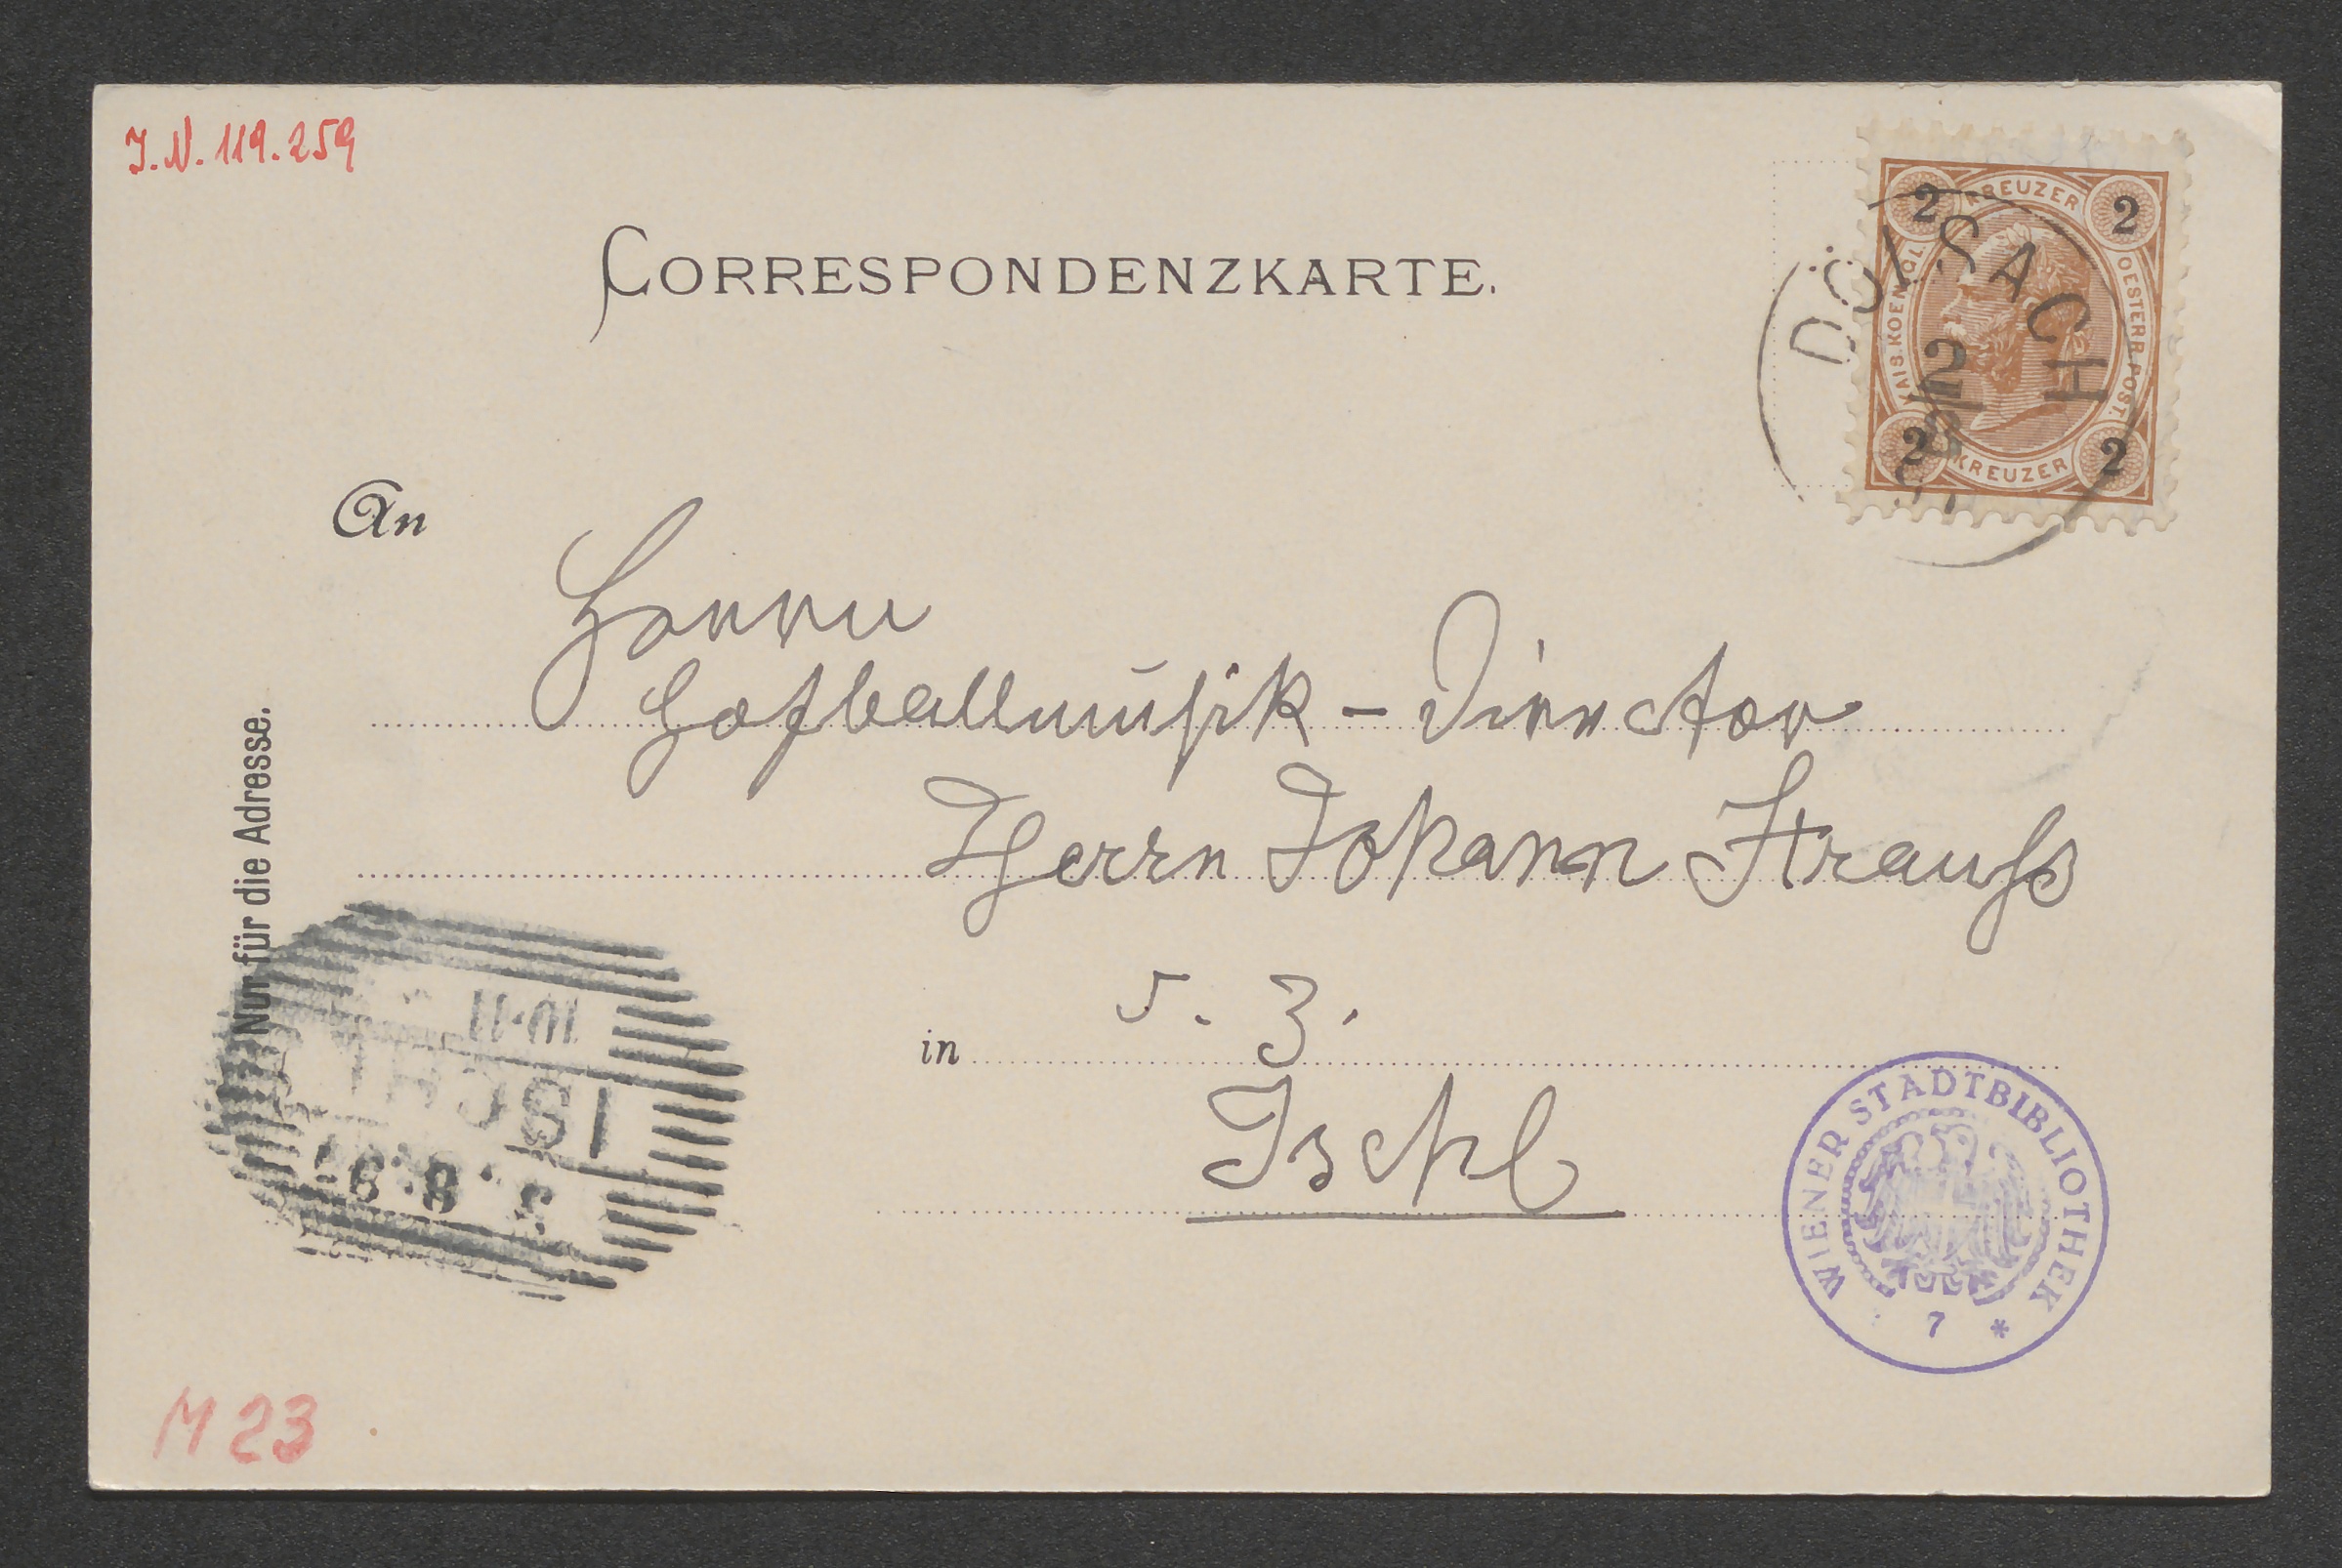 J.N. 119.259
CORRESPONDENZKARTE.
2 KREUZER 2
KAIS. KOENIGL. OESTERR. POST.
2 KREUZER 2
DÖLSACH
An
Herrn
Hofballmusik – Director
Herrn Johann Strauß
in z. Z.
Ischl
Nur für die Adresse.
10-11
ISCHL
WIENER STADTBIBLIOTHEK
7 *
M 23